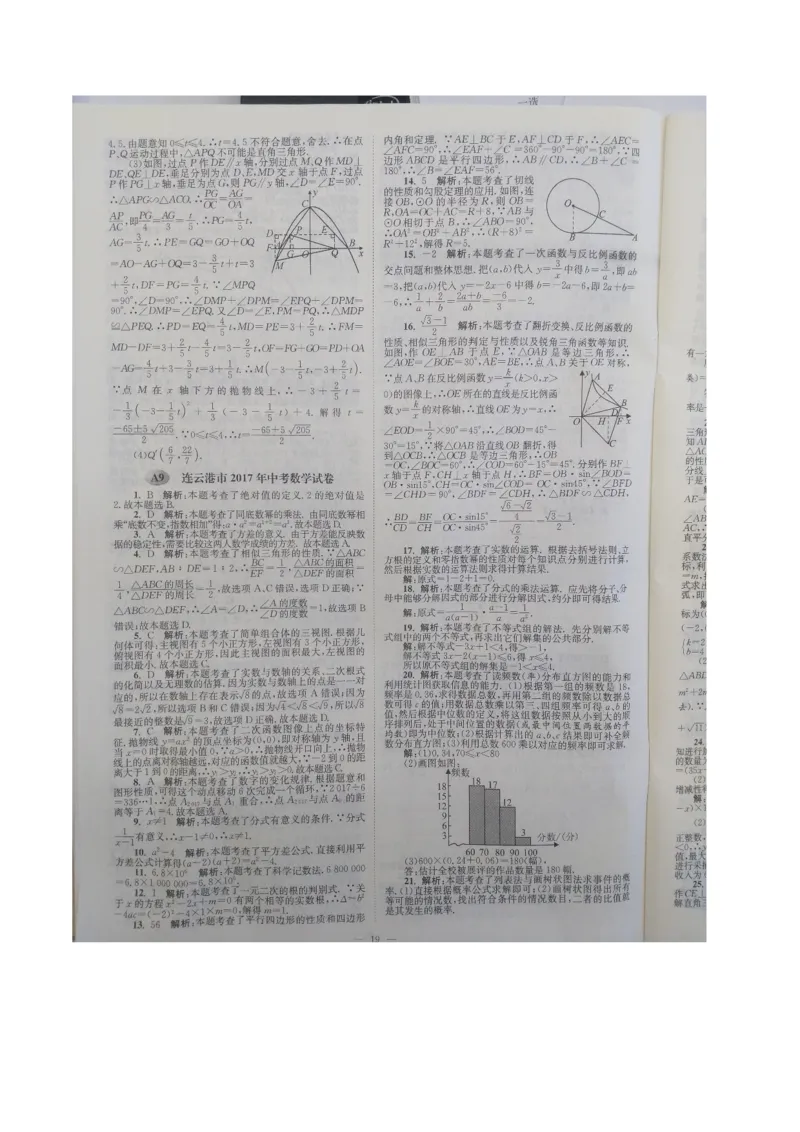 4.5.由题意知0≤t≤4,∴t=4.5不符合题意,舍去.∴在点
P,Q运动过程中,△APQ不可能是直角三角形.
(3)如图,过点P作DE∥x轴,分别过点M,Q作MD⊥
DE,QE⊥DE,垂足分别为点D,E,MD交x轴于点F,过点
P作PG⊥x轴,垂足为点G,则PG∥y轴,∠D=∠E=90°.
∴△APG∽△ACO,∴PG/OC=AG/OA=
AP/AC,即PG/4=AG/3=t/5.∴PG=4/5t,
AG=3/5t,∴PE=GQ=GO+OQ
=AO-AG+OQ=3-3/5t+t=3
+2/5t,DF=PG=4/5t.∵∠MPQ
=90°,∠D=90°,∴∠DMP+∠DPM=∠EPQ+∠DPM=
90°.∴∠DMP=∠EPQ.又∠D=∠E,PM=PQ,∴△MDP
≌△PEQ.∴PD=EQ=4/5t,MD=PE=3+2/5t.∴FM=
MD-DF=3+2/5t-4/5t=3-2/5t,OF=FG+GO=PD+OA
-AG=4/5t+3-3/5t=3+1/5t.∴M(-3-1/5t,-3+2/5t).
∵点M在x轴下方的抛物线上,∴-3+2/5t=
-1/3(-3-1/5t)²+1/3(-3-1/5t)+4.解得t=
(-65±5√205)/2.∵0≤t≤4,∴t=(-65+5√205)/2.
(4)Q′(6/7,22/7).
A9 连云港市2017年中考数学试卷
1. B 解析:本题考查了绝对值的定义.2的绝对值是
2.故本题选B.
2. D 解析:本题考查了同底数幂的乘法.由同底数幂相
乘"底数不变,指数相加"得:a·a²=a¹⁺²=a³.故本题选D.
3. A 解析:本题考查了方差的意义.由于方差能反映数
据的稳定性,需要比较这两人数学成绩的方差.故本题选A.
4. D 解析:本题考查了相似三角形的性质.∵△ABC
∽△DEF,AB∶DE=1∶2,∴BC/EF=1/2,△ABC的面积/△DEF的面积=
1/4,△ABC的周长/△DEF的周长=1/2,故选项A、C错误,选项D正确;∵
△ABC∽△DEF,∴∠A=∠D,∴∠A的度数/∠D的度数=1,故选项B
错误;故本题选D.
5. C 解析:本题考查了简单组合体的三视图.根据几
何体可得:主视图有5个小正方形,左视图有3个小正方形,
俯视图有4个小正方形,因此主视图的面积最大,左视图的
面积最小.故本题选C.
6. D 解析:本题考查了实数与数轴的关系、二次根式
的化简以及无理数的估算.因为实数与数轴上的点是一一对
应的,所以在数轴上存在表示√8的点,故选项A错误;因为
√8=2√2,所以选项B和C错误;因为√4<√8<√9,所以√8
最接近的整数是√9=3,故选项D正确.故本题选D.
7. C 解析:本题考查了二次函数图像上点的坐标特
征.抛物线y=ax²的顶点坐标为(0,0),即对称轴为y轴,且
当x=0时取得最小值0,∵a>0,∴抛物线开口向上,∴抛物
线上的点离对称轴越远,对应的函数值就越大,∵-2到0的距
离大于1到0的距离,∴y₁>y₂,∴y₁>y₂>0.故本题选C.
8. A 解析:本题考查了数字的变化规律.根据题意和
图形性质,可得这个动点移动6次完成一个循环,∵2 017÷6
=336…1,∴点A₂₀₁₇与点A₁重合,∴点A₂₀₁₇与点A₀的距
离等于A₁=4.故本题选A.
9. x≠1 解析:本题考查了分式有意义的条件.∵分式
1/(x-1)有意义,∴x-1≠0,∴x≠1.
10. a²-4 解析:本题考查了平方差公式.直接利用平
方差公式计算得(a-2)(a+2)=a²-4.
11. 6.8×10⁶ 解析:本题考查了科学记数法.6 800 000
=6.8×1 000 000=6.8×10⁶.
12. 1 解析:本题考查了一元二次的根的判别式.∵关
于x的方程x²-2x+m=0有两个相等的实数根,∴Δ=b²
-4ac=(-2)²-4×1×m=0,解得m=1.
13. 56 解析:本题考查了平行四边形的性质和四边形
内角和定理.∵AE⊥BC于E,AF⊥CD于F,∴∠AEC=
∠AFC=90°,∴∠EAF+∠C=360°-90°-90°=180°.∵四
边形ABCD是平行四边形,∴AB∥CD,∴∠B+∠C=
180°,∴∠B=∠EAF=56°.
14. 5 解析:本题考查了切线
的性质和勾股定理的应用.如图,连
接OB,⊙O的半径为R,则OB=
R,OA=OC+AC=R+8,∵AB与
⊙O相切于点B,∴∠ABO=90°.
∴OA²=OB²+AB²,∴(R+8)²=
R²+12²,解得R=5.
15. -2 解析:本题考查了一次函数与反比例函数的
交点问题和整体思想.把(a,b)代入y=3/x中得b=3/a,即ab
=3,把(a,b)代入y=-2x-6中得b=-2a-6,即2a+b=
-6,∴1/a+2/b=(2a+b)/ab=-6/3=-2.
16. (√3-1)/2 解析:本题考查了翻折变换、反比例函数的
性质、相似三角形的判定与性质以及锐角三角函数等知识.
如图,作OE⊥AB于点E,∵△OAB是等边三角形,∴
∠AOE=∠BOE=30°,AE=BE,∴点A、B关于OE对称,
∵点A、B在反比例函数y=k/x(k>0,x>
0)的图像上,∴OE所在的直线是反比例函
数y=k/x的对称轴,∴直线OE为y=x,∴
∠EOD=1/2×90°=45°,∴∠BOD=45°-
30°=15°,∵将△OAB沿直线OB翻折,得
到△OCB,∴△OCB是等边三角形,∴OB
=OC,∠BOC=60°,∴∠COD=60°-15°=45°.分别作BF⊥
x轴于点F,CH⊥x轴于点H,∴BF=OB·sin∠BOD=
OB·sin15°,CH=OC·sin∠COD=OC·sin45°.∵∠BFD
=∠CHD=90°,∠BDF=∠CDH,∴△BDF∽△CDH,
∴BD/CD=BF/CH=OC·sin15°/OC·sin45°=((√6-√2)/4)/(√2/2)=(√3-1)/2.
17. 解析:本题考查了实数的运算.根据去括号法则、立
方根的定义和零指数幂的性质对每个知识点分别进行计算,
然后根据实数的运算法则求得计算结果.
解:原式=1-2+1=0.
18. 解析:本题考查了分式的乘法运算.应先将分子、分
母中能够分解因式的部分进行分解因式,约分即可得结果.
解:原式=1/a(a-1)·(a-1)/a=1/a².
19. 解析:本题考查了不等式组的解法.先分别解不等
式组中的两个不等式,再求出它们解集的公共部分.
解:解不等式-3x+1<4,得>-1,
解不等式3x-2(x-1)≤6,得x≤4,
所以原不等式组的解集是-1<x≤4.
20. 解析:本题考查了读频数(率)分布直方图的能力和
利用统计图获取信息的能力.(1)根据第一组的频数是18,
频率是0.36,求得数据总数,再用第二组的频数除以数据总
数可得c的值;用数据总数乘以第三、四组频率可得a,b的
值,然后根据中位数的定义,将这组数据按照从小到大的顺
序排列后,处于中间位置的数据(或最中间位置两数据的平
均数)即为中位数;(2)根据计算出的a,b,c结果即可补全频
数分布直方图;(3)利用总数600乘以对应的频率即可求解.
解:(1)0.34,70≤x<80
(2)画图如图:
频数
18 15 12 9 6 3
18 17 12 3
60 70 80 90 100 分数/(分)
(3)600×(0.24+0.06)=180(幅),
答:估计全校被展评的作品数量是180幅.
21. 解析:本题考查了列表法与画树状图法求事件的概
率.(1)直接根据概率公式求解即可;(2)画树状图得出所有
等可能的情况数,找出符合条件的情况数目,二者的比值就
是其发生的概率.
— 19 —